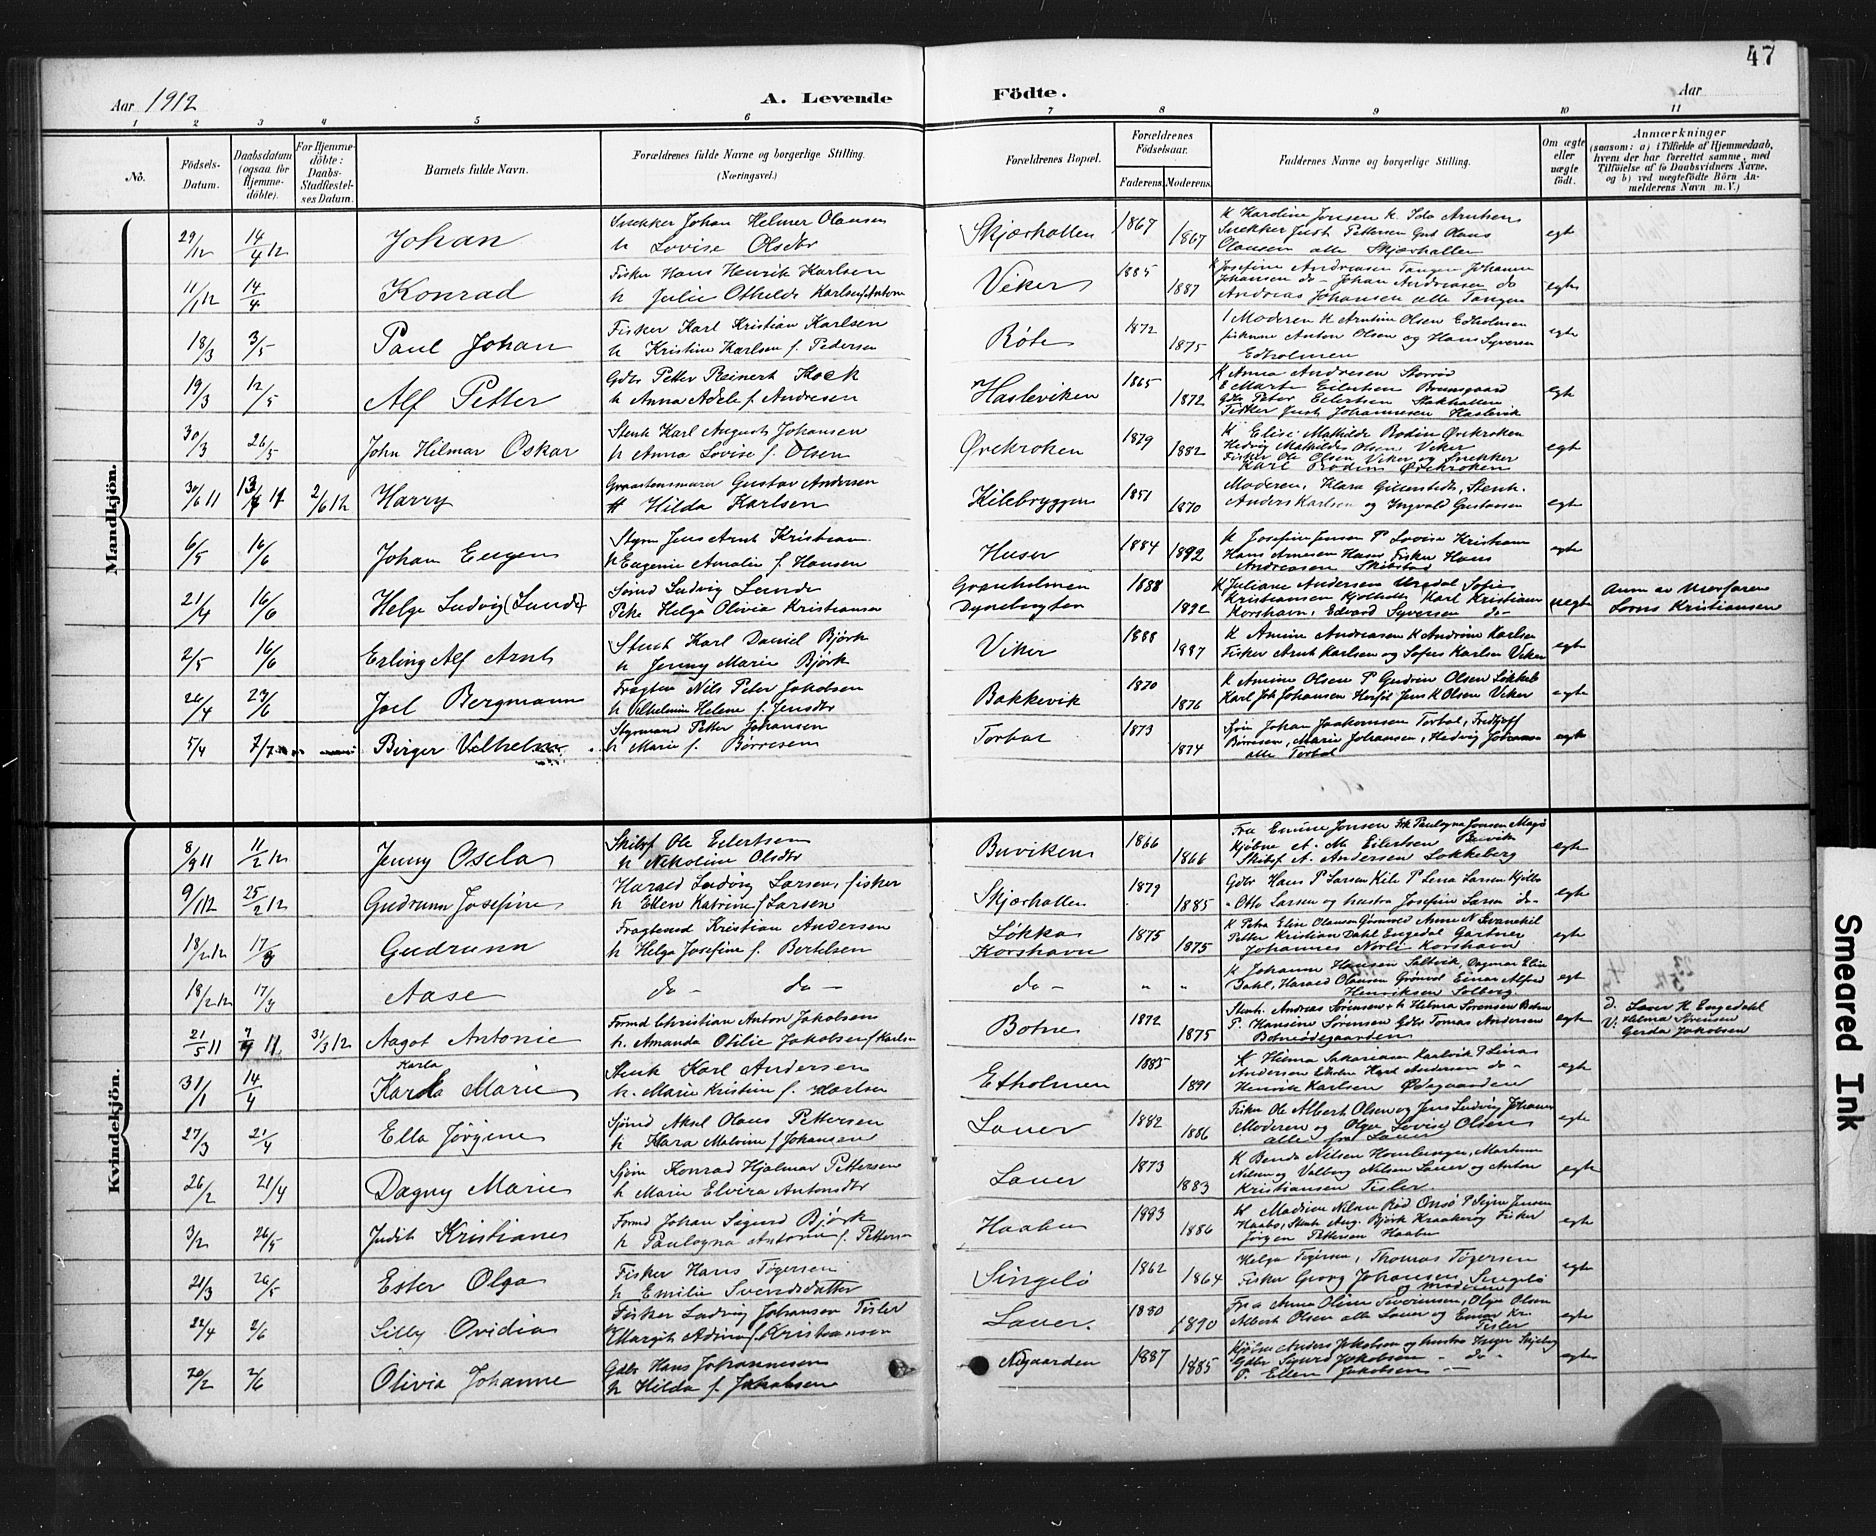 47
Aar 1912
A. Levende Födte.
Aar
1 2 3 4 5 6 7 8 9 10 11
No.
Födsels-Datum.
Daabsdatum (ogsaa for Hjemme-döbte).
For Hjemme-döbte: Daabs-Stadfæstel-ses Datum.
Barnets fulde Navn.
Forældrenes fulde Navne og borgerlige Stilling. (Næringsvei.)
Forældrenes Bopæl.
Forældrenes Födselsaar.
Faderens. Moderens.
Faddernes Navne og borgerlige Stilling.
Om ægte eller uægte födt.
Anmærkninger
(saasom: a) i Tilfælde af Hjemmedaab, hvem der har forrettet samme, med Tilföielse af to Daabsvidners Navne, og b) ved uægtefödte Börn An-melderens Navn m. V.)
Mandkjön.
29/12 14/4 12 Johan
Snekker Johan Helmer Olausen
h Lovise Olsdtr
Skjærhallen 1867 1867
K Karoline Jensen K. Ida Arntsen
Snekker Just Pettersen Gust Olaus
Olausen alle Skjærhallen
egte
11/1 12 14/4 Konrad
Fisker Hans Henrik Karlsen
h Julie Othilde Karlsen f Anton
Viker 1885 1887
K Josefine Andreasen Tangen Johanne
Johansen do - Johan Andreasen do
Andreas Johansen alle Tangen
egte
18/3 3/5 Paul Johan
Fisker Karl Kristian Karlsen
h Kristine Karlsen f. Pedersen
Røte 1872 1875
Moderen K Arntine Olsen Edholmen
fiskerne Anton Olsen og Hans Syversen
Edholmen
egte
19/3 12/5 Alf Petter
Gdbr Petter Reinert Kock
h Anna Adele f. Andresen
Hasleviken 1865 1872
K Anna Andresen Storrød
E Marte Eilertsen Brunsgaard
Gdbr Peter Eilertsen
Fisker Just Johannesen Haslevik
egte
30/3 26/5 John Hilmar Oskar
Stenh Karl August Johansen
h Anna Lovise f. Olsen
Ørekroken 1879 1882
K Elise Mathilde Bodin Ørekroken
Hedvig Mathilde Olsen Viker
Fisker Ole Olsen Viker og Snekker
Karl Bodin Ørekroken
egte
30/6 11 13/7 11 2/6 12 Harry
Gustav Andersen
H Hilda Karlsen
Kilebryggen 1851 1870
Moderen, Klara Gillerstedt, Stenh.
Anders Karlsen og Ingvald Gustavsen
egte
6/5 16/6 Johan Eugen
Styrm Jens Arnt Kristian
h Eugenie Amalie f. Hansen
Huser 1884 1892
K Josefine Jensen P Lovise Kristians
Hans Arnesen Huser Fisker Hans
Andreasen Skibstad
egte
21/4 16/6 Helge Ludvig (Lunde)
Sømd Ludvig Lunde
Pike Helga Olivia Kristiansen
Granholmen
Dynebugten
1888 1892
K Juliane Andersen Urødal Sofie
Kristiansen Kjølholt, Karl Kristian
Korshavn, Edvard Syversen do-
uegte
Anm av Morfaren
Lorns Kristiansen
2/5 16/6 Erling Alf Arnt
Stenh Karl Daniel Bjørk
h Jenny Marie Bjørk
Viker 1888 1887
K Amine Andreasen K Andrine Karlsen
Fisker Arnt Karlsen og Sofus Karlsen Viker
egte
26/4 23/6 Joel Bergmann
Fragtem Nils Peter Jakobsen
h Vilhelmine Helene f. Jensdtr
Bakkevik 1870 1876
K Amine Olsen P Gudrun Olsen Løkkeb
Karl Joh Johansen Herføl Jens K Olsen Viker
egte
5/4 7/7 Birger Vilhelm
Styrmand Petter Johansen
h Marie f. Børresen
Torbal 1873 1874
Sjøm Johan Jaakomsen Torbal, Fridtjoff
Børresen, Marie Johansen, Hedvig Johansen
alle Torbal
egte
Kvindekjön.
8/9 11 11/2 12 Jenny Osela
Skibsf Ole Eilertsen
h Nikoline Olsdtr
Buviken 1866 1866
Fru Emine Jensen Frk Paulagna Jonsen Magø
Kjøbm A. M. Eilertsen Buvik
Skibsf A. Andersen Løkkeberg
egte
9/1 12 25/2 12 Gudrunn Josefine
Harald Ludvig Larsen, fisker
h Ellen Katrine f Larsen
Skjærhallen 1879 1885
Gdbr Hans P Larsen Kile P Lena Larsen Kjølbo
" Otto Larsen og hustru Josefine Larsen do-
egte
18/2 12 17/3 Gudrunn
Fragtemd Kristian Andersen
h Helga Josefine f. Bertilsen
Løkka
Korshavn
1875 1875
K Petra Elise Olausen Grønvold Anne N Svanekil
Petter Kristian Dahl Engedal Gartner
Johannes Norli Korshavn
egte
18/2 12 17/3 Aase
do - do -
do - " "
K Johanne Hansen Saltvik, Dagmar Elise
Dahl, Harald Olausen Grønvol Einar Alfred
Henriksen Solberg
egte
21/5 11 7/9 11 31/3 12 Aagot Antonie
Formd Christian Anton Jakobsen
h. Amanda Otilie Jakobsen f Karlsen
Botne 1872 1875
Stenh. Andreas Sørensen + h Helma Sørensen Botne
P. Hansine Sørensen Gdbr Tomas Andersen
Botneødegaarden
egte
D. Laver H Engedahl
V. Helma Sørensen
Gerda Jakobsen
31/1 14/4 Karla
Karla Marie
Stenh Karl Andersen
h. Marie Kristine f. Karlsen
Etholmen 1885 1891
K Helma Sakariasen Kaalvik P Lina
Andersen Etholm Hart Andersen do-
Henrik Karlsen Ødegaarden
egte
27/3 21/4 Ella Jørgine
Sjømd Aksel Olaus Pettersen
h Klara Malvine f Johansen
Lauer 1882 1886
Fisker Ole Albert Olsen og Jens Ludvig Johansen
Moderen og Olga Lovise Olsen
alle fra Lauer
egte
26/2 21/4 Dagny Marie
Sjøm Konrad Hjalmar Pettersen
h Marie Elvira Antonsdtr
Lauer 1873 1883
K Benda Nilsen Homlungen, Martine
Nilsen og Valborg Nilsen Lauer og Anton
Kristiansen Tisler.
egte
3/2 26/5 Judit Kristiane
Formd Johan Sigurd Bjørk
h Paulagna Antonie f. Pettersen
Haabu 1883 1886
K Madien Nilsen Rød Onsø P Signe Jensen
Haabu, Stenh Aug. Bjørk Kraakerøy Fisker
Jørgen Pettersen Haabu
egte
21/3 26/5 Ester Olga
Fisker Hans Tøgersen
h Emilie Svendsdatter
Singelø 1862 1864
Helga Tøgersen, Thomas Tøgersen
Fisker Georg Johansen, Singelø
og moderen
egte
22/4 2/6 Lilly Ovidia
Fisker Ludvig Johansen Tisler
h Margit Adina f. Kristiansen
Lauer. 1880 1890
Fru Anna Oline Severinsen, Olga Olsen
Albert Olsen alle Lauer og Emma Kr.
Tisler
egte
20/2 2/6 Olivia Johanne
Gdbr Hans Johannesen
h Hilda f. Jakobsen
Nigaarden 1887 1885
Kjøbm Anders Jakobsen og hustru Inger Skjeberg
Gdbr Sigurd Jakobsen - do -
P. Ellen Jakobsen -
egte
Smeared Ink